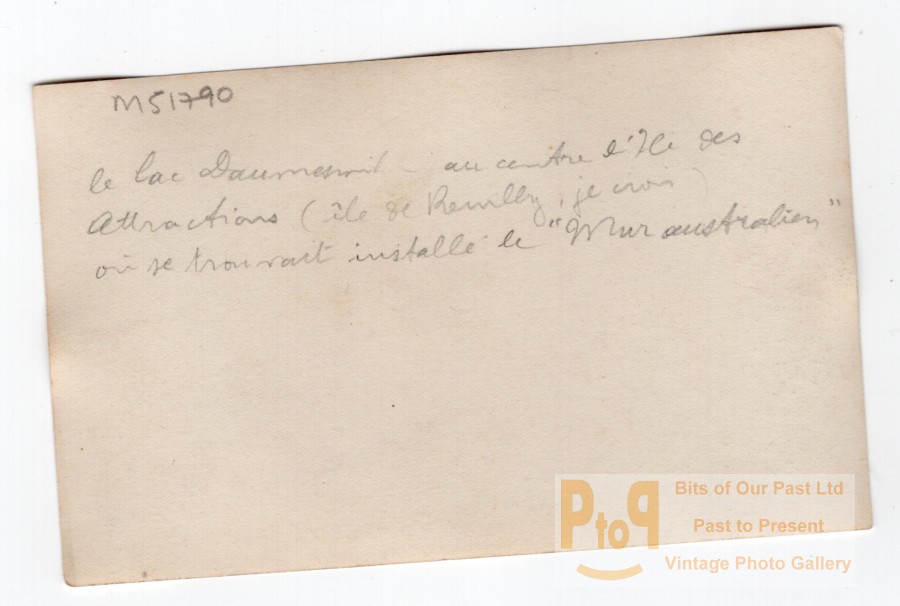 M51790
le lac Daumesnil - au centre l'Ile des
Attractions (île de Reuilly, je crois)
où se trouvait installé le "Mur australien"
PtoP
Bits of Our Past Ltd
Past to Present
Vintage Photo Gallery